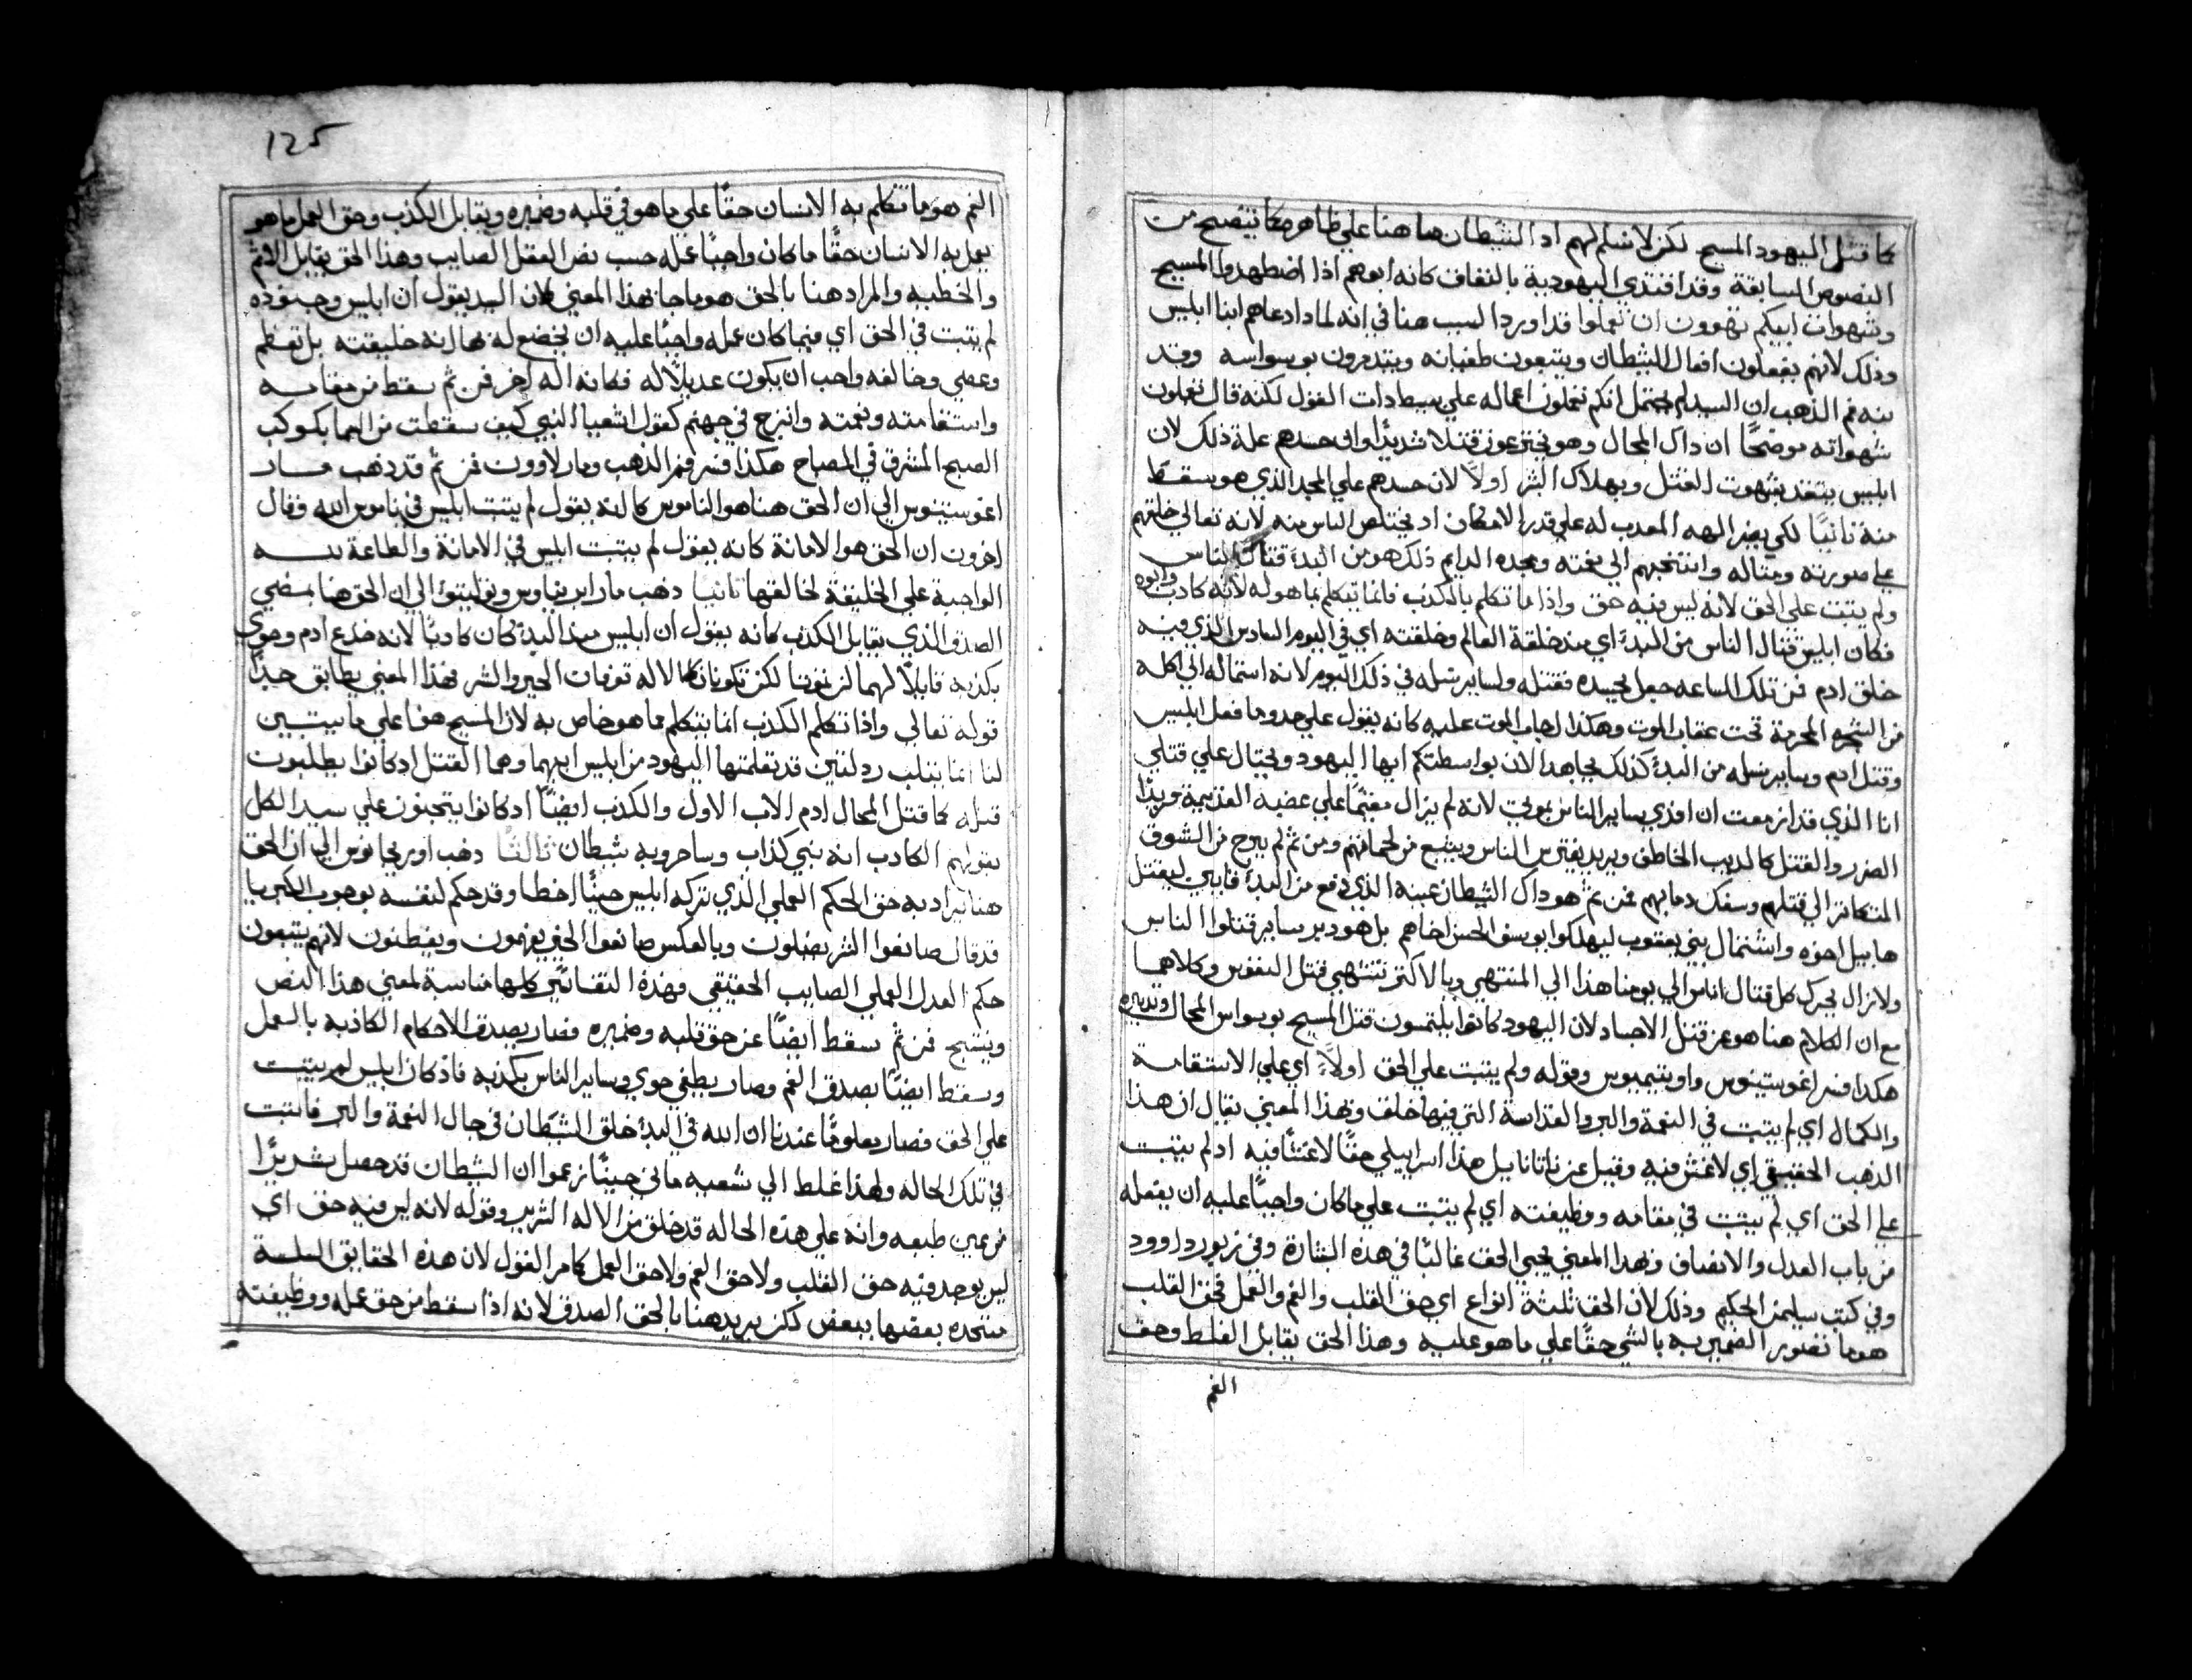 كما قتل اليهود المسيح لكن لا نسلم لهم اد الشيطان هاهنا علي ظاهره كما يتضح من
النصوص السابقة وقد افتدي اليهودية بالنفاق كانه ابوهم اذا اضطهدوا المسيح
وشهوات ابيكم تهوون ان تعملوا قد اورد السبب هنا في انه لماذا دعاهم ابنا ابليس
وذلك لانهم يفعلون افعال الشيطان ويتبعون طغيانه ويتدمرون بوسواسه وقد
نبه فم الذهب ان السيد لم يقل انكم تعملون اعماله علي بسيط ذات القول لكنه قال تعملون
شهواته موضحًا ان ذاك المحال وهو قتلا شديدًا وان حسدهم علة ذلك لان
ابليس يتقد بشهوت القتل وبهلاك البشر اولاً لان حسدهم علي المجد الذي هو سقط
منه ثانيًا لكي يضر الهه المعدب له علي قدر الامكان اد يختلس الناس منه لانه تعالي خلقهم
علي صورته ومثاله وانتخبهم الي نعمته ومجده الدايم ذلك هو من البدء قتال للناس
ولم يتبت علي الحق لانه ليس فيه حق واذا ما تكلم بالكذب فانما يتكلم بما هو له لانه كادب وابوه
فكان ابليس قتال الناس من البدء اي منذ خلقة العالم وخلقته اي في اليوم السادس الذي فيه
خلق ادم فمن تلك الساعه جعل يحسده فقتله وساير نسله في ذلك اليوم لانه استماله الي اكله
من الشجره المحرمة تحت عقاب الموت وهكذا اجلب الموت عليه كانه يقول علي حدو ما فعل ابليس
وقتل ادم وساير نسله من البدء كذلك يجاهد الان بواسطتكم ايها اليهود ويحتال علي قتلي
انا الذي قد ازمعت ان افدي ساير الناس بموتي لانه لم يزال مغتمًا علي غضبه القديمة مريدًا
الضرر والقتل كالديب الخاطف ويريد يفترس الناس ويشبع من لحمانهم ومن ثم لم يبرح من الشوق
المتكاتر الي قتلهم وسفك دمايهم فمن ثم هو داك الشيطان عينه الذي دفع من البدء قايين ليقتل
هابيل اخوه واشتمال بني يعقوب ليهلكوا يوسف الحسن اخاهم بل هو دبر ساير قتلوا الناس
ولا زال يحرك كل قتال اناس الي يومنا هذا الي المنتهي وبالاكتر تشتهي قتل النفوس وكلاهما
مع ان الكلام هنا هو عن قتل الاجساد لان اليهود كانوا يلتمسون قتل المسيح بوسواس المحال وتدبيره
هكذا فسر اغوستينوس واوتيميوس وقوله ولم يتبت علي الحق اولاً اي علي الاستقامة
والكمال اي لم يتبت في النعمة والبر والقداسة التي فيها خلق وبهذا المعني يقال ان هذا
الذهب الحقيقي اي لا غش فيه وقيل عن ناتانايل هذا اسراييلي حقًا لا غشًا فيه اد لم يتبت
علي الحق اي لم يتبت في مقامه ووظيفته اي لم يتبت علي ما كان واجبًا عليه ان يفعله
من باب العدل والانصاف وبهذا المعني يجي الحق غالبًا في هذه البشارة وفي زبور داوود
وفي كتب سليمن الحكيم وذلك لان الحق ثلثة انواع اي حق القلب والفم والعمل فحق القلب
هو ما تصور الضمير به بالشي حقًا علي ما هو عليه وهذا الحق يقابل الغلط وحق
الفم
125
الفم هو ما تكلم به الانسان حقًا علي ما هو في قلبه وضميره ويقابل الكذب وحق العمل ما هو
يعمل به الانسان حقًا ما كان واجبًا عمله حسب نص العقل الصايب وهذا الحق يقابل الاثم
والخطيه والمراد هنا بالحق هو ما جا بهذا المعني كان السيد يقول ان ابليس وجنوده
لم يتبت في الحق اي فيما كان عمله واجبًا عليه ان يخضع له بما انه خليقته بل تعظم
وعصي وخالفه واحب ان يكون عديلاً له فكانه اله اخر فمن ثم سقط من مقامه
واستقامته ونعمته وانزج في جهنم كقول اشعيا النبي كيف سقطت من السما يا كوكب
الصبح المشرق في المصباح هكذا فسر فم الذهب ومار لاوون فمن ثم قد ذهب مار
اغوستينوس الي ان الحق هنا هو الناموس كانه يقول لم يتبت ابليس في ناموس الله وقال
اخرون ان الحق هو الامانة كانه يقول لم يتبت ابليس في الامانة والطاعة لله
الواجبة علي الخليقة لخالقها ثانيًا ذهب مار ايرينياوس وتوليتوا الي ان الحق هنا بمعني
الصدق الذي يقابل الكذب كانه يقول ان ابليس منذ البدء كان كادبًا لانه خدع ادم وحوي
بكذبه قايلاً لهما لن تموتا لكن تكونان كالاله تعرفان الخير والشر فهذا المعني يطابق جدًا
قوله تعالي واذا تكلم الكذب انما يتكلم مما هو خاص به لان المسيح هنا علي ما يتبين
لنا انما يتلب ردلتين قد تعلمتها اليهود من ابليس ابيهما وهما القتل اد كانوا يطلبون
قتله كما قتل المحال ادم الاب الاول والكذب ايضًا اد كانوا يتجنون علي سيد الكل
بقولهم الكادب انه نبي كذاب وساحر وبه شيطان ثالثًا ذهب اوريجانوس الي ان الحق
هنا يراد به حق الحكم العملي الذي تركه ابليس حينًا اخطا وقد حكم لنفسه بوجوب الكبريا
قد قال صانعوا الشر يضلون وبالعكس صانعوا الخير يفهمون ويفطنون لانهم يتبعون
حكم العدل العملي الصايب الحقيقي فهذه التفاسير كلها مناسبة لمعني هذا النص
وينتج فمن ثم سقط ايضًا عن حق قلبه وضميره فصار يصدق الاحكام الكاذبه بالعمل
وسقط ايضًا بصدق الفم وصار يطغي حوي وساير الناس بكذبه فاذ كان ابليس لم يتبت
علي الحق فصار معلومًا عندنا ان الله في البدء خلق الشيطان في حال النعمة والبر فما تبت
في تلك الحاله ولهذا غلط الي شعبه ماني حينًا زعموا ان الشيطان قد حصل شريرًا
من عين طبعه وانه علي هذه الحاله قد خلق من الاله الشرير وقوله لانه ليس فيه حق اي
ليس يوجد فيه حق القلب ولا حق الفم ولا حق العمل كما مر القول لان هذه الحقايق الثلثة
متحده بعضها ببعض لكن يريد هنا بالحق الصدق لانه اذا سقط من حق عمله ووظيفته